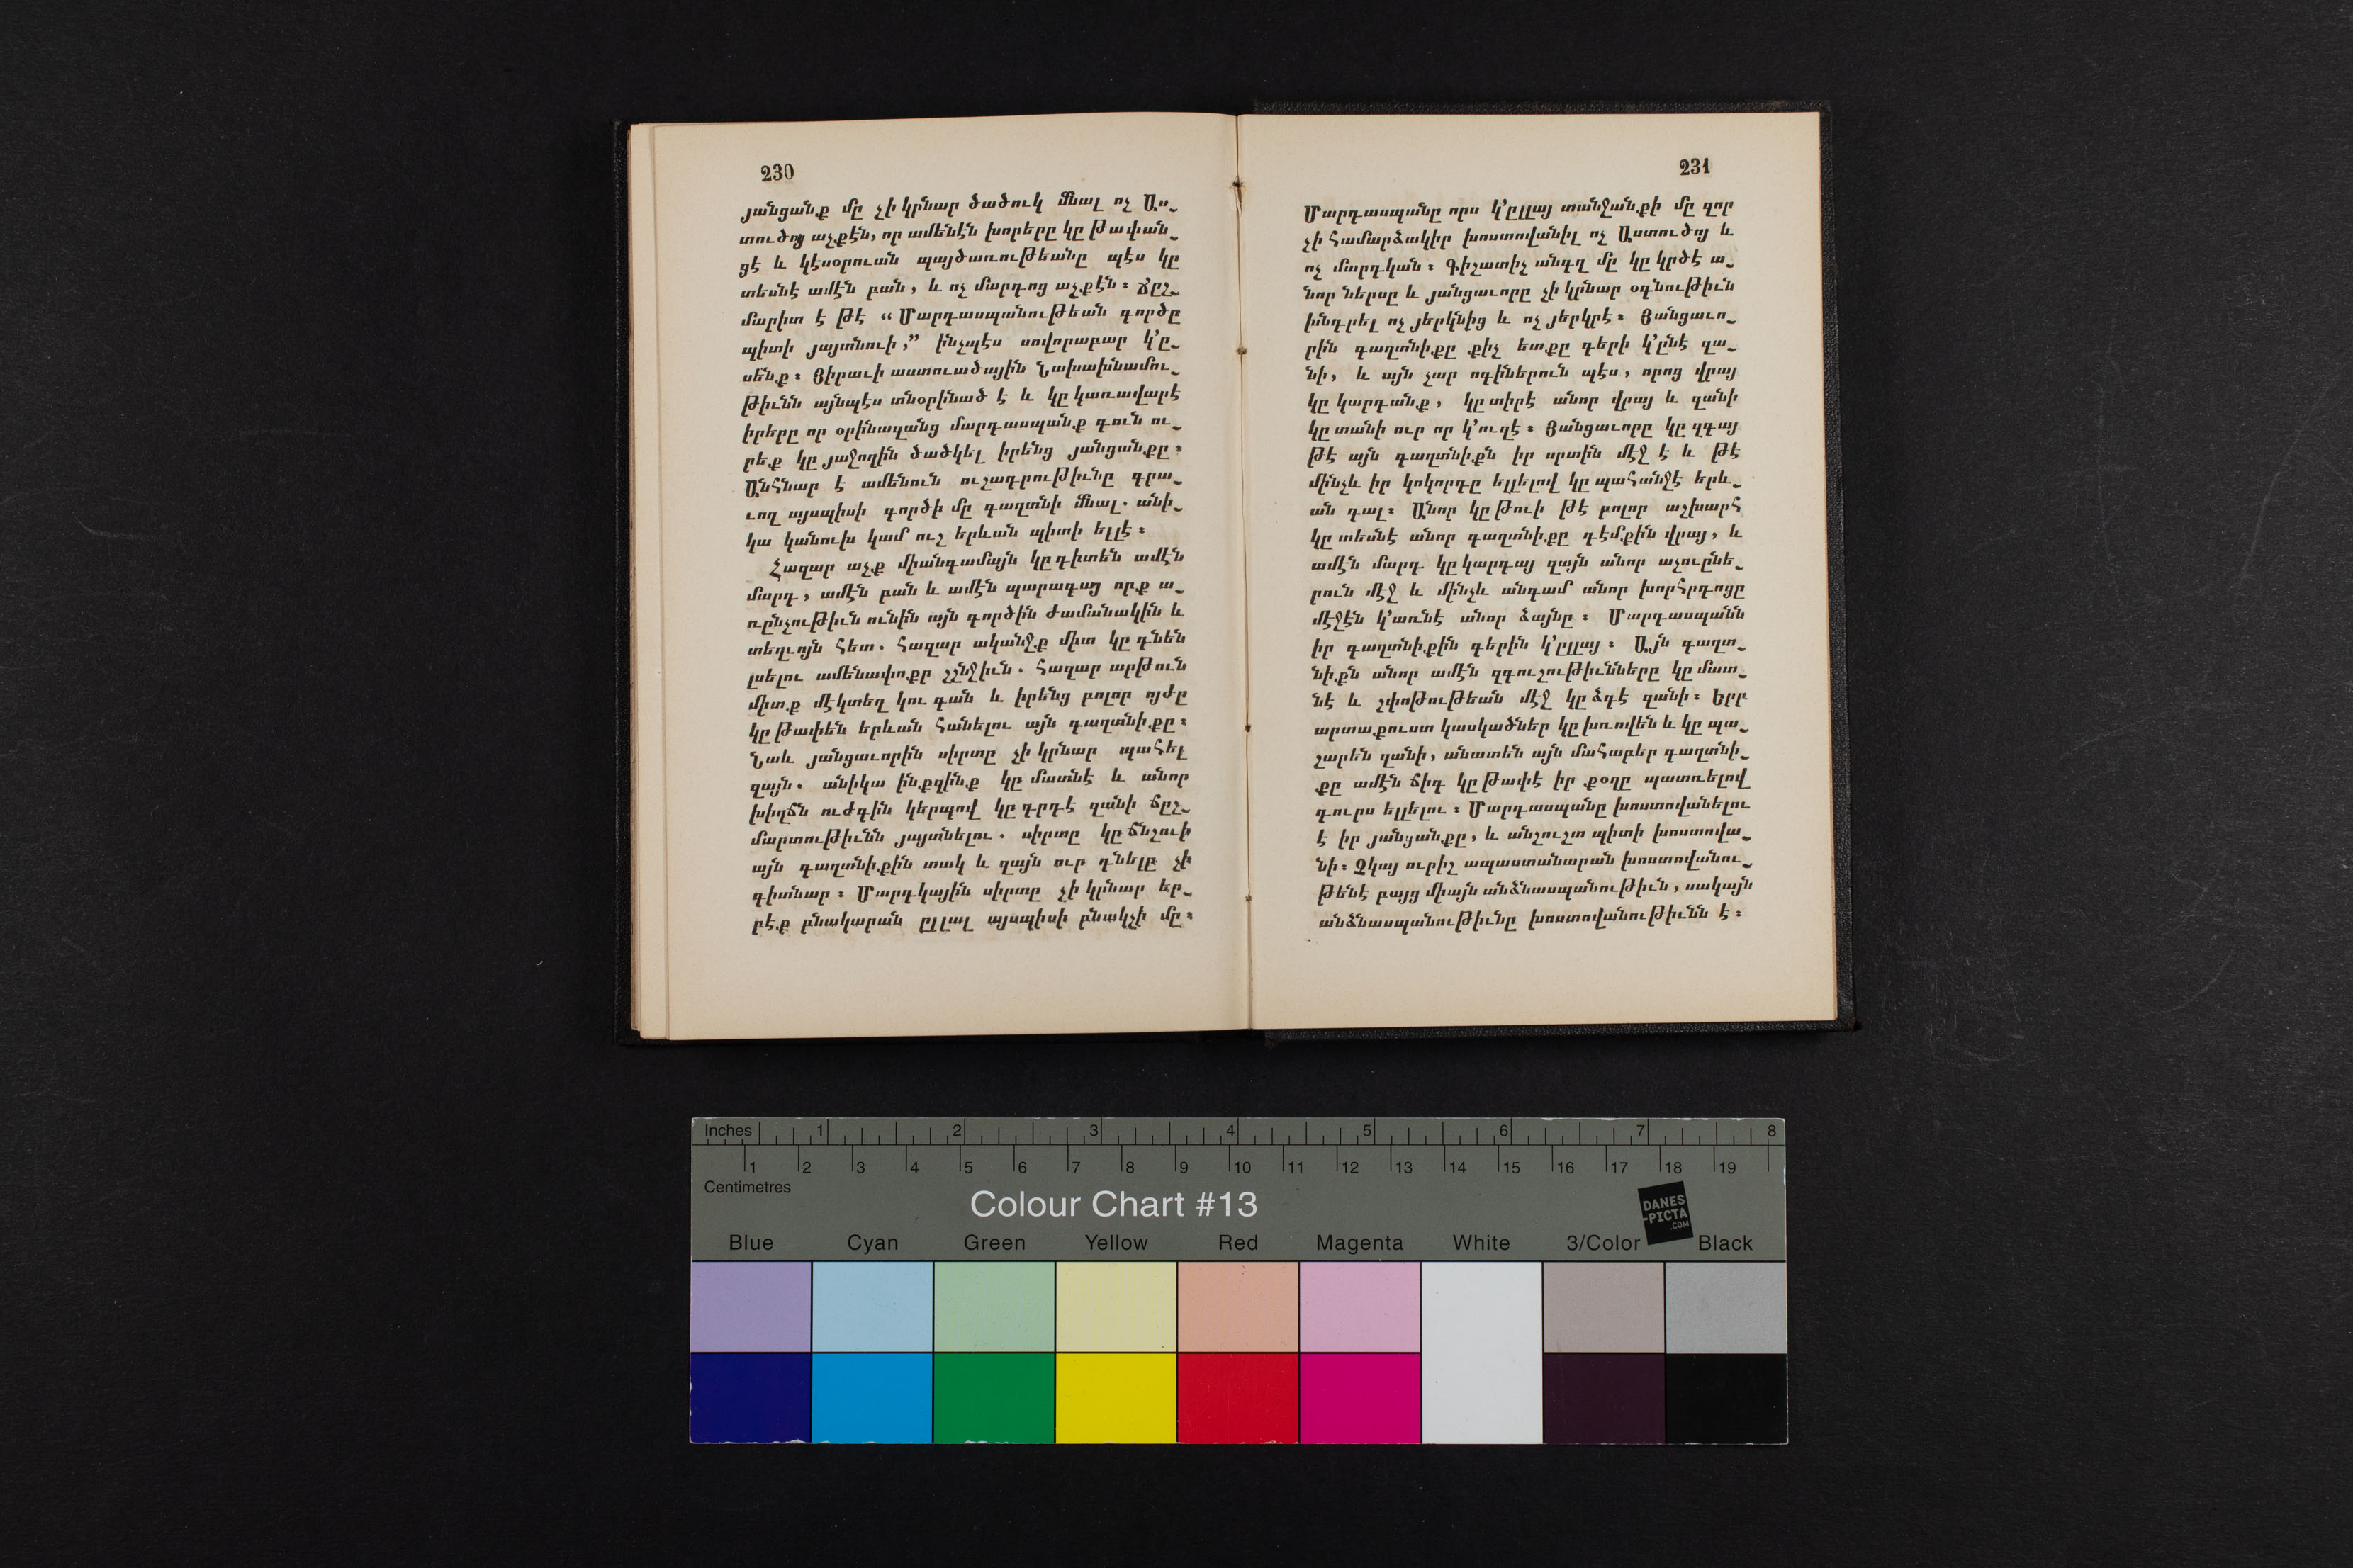 230
յանցանք մը չի կրնար ծածուկ մնալ ոչ Աս֊
տուծոյ աչքէն, որ ամենէն խորերը կը թափան֊
ցէ և կէսօրուան պայծառութեանը պէս կը
տեսնէ ամէն բան, և ոչ մարդոց աչքէն։ Ճըշ֊
մարիտ է թէ “Մարդասպանութեան գործը
պիտի յայտնուի,” ինչպէս սովորաբար կ’ը֊
սենք։ Յիրաւի աստուածային Նախախնամու֊
թիւնն այնպէս տնօրինած է և կը կառավարէ
իրերը որ օրինազանց մարդասպանք գուն ու֊
րեք կը յաջողին ծածկել իրենց յանցանքը։
Անհնար է ամենուն ուշադրութիւնը գրա֊
ւող այսպիսի գործի մը գաղտնի մնալ. անի֊
կա կանուխ կամ ուշ երևան պիտի ելլէ։
Հազար աչք միանգամայն կը դիտեն ամէն
մարդ, ամէն բան և ամէն պարագայ որք ա֊
ռընչութիւն ունին այն գործին ժամանակին և
տեղւոյն հետ. հազար ականջք միտ կը դնեն
լսելու ամենափոքր շշնջիւն. հազար արթուն
միտք մէկտեղ կու գան և իրենց բոլոր ոյժը
կը թափեն երևան հանելու այն գաղտնիքը։
Նաև յանցաւորին սիրտը չի կրնար պահել
զայն. անիկա ինքզինք կը մատնէ և անոր
խիղճն ուժգին կերպով կը դրդէ զանի ճըշ֊
մարտութիւնն յայտնելու. սիրտը կը ճնշուի
այն գաղտնիքին տակ և զայն ուր դնելը չի
գիտնար։ Մարդկային սիրտը չի կրնար եր֊
բէք բնակարան ըլլալ այսպիսի բնակչի մը։
231
Մարդասպանը որս կ’ըլլայ տանջանքի մը զոր
չի համարձակիր խոստովանիլ ոչ Աստուծոյ և
ոչ մարդկան։ Գիշատիչ անգղ մը կը կրծէ ա֊
նոր ներսը և յանցաւորը չի կրնար օգնութիւն
խնդրել ոչ յերկնից և ոչ յերկրէ։ Յանցաւո֊
րին գաղտնիքը քիչ ետքը գերի կ’ընէ զա֊
նի, և այն չար ոգիներուն պէս, որոց վրայ
կը կարդանք, կը տիրէ անոր վրայ և զանի
կը տանի ուր որ կ’ուզէ։ Յանցաւորը կը զգայ
թէ այն գաղտնիքն իր սրտին մէջ է և թէ
մինչև իր կոկորդը ելլելով կը պահանջէ երև֊
ան գալ։ Անոր կը թուի թէ բոլոր աշխարհ
կը տեսնէ անոր գաղտնիքը դէմքին վրայ, և
ամէն մարդ կը կարդայ զայն անոր աչուընե֊
րուն մէջ և մինչև անգամ անոր խորհրդոցը
մէջէն կ’առնէ անոր ձայնը։ Մարդասպանն
իր գաղտնիքին գերին կ’ըլլայ։ Այն գաղտ֊
նիքն անոր ամէն զգուշութիւնները կը մատ֊
նէ և շփոթութեան մէջ կը ձգէ զանի։ Երբ
արտաքուստ կասկածներ կը խռովեն և կը պա֊
շարեն զանի, անատեն այն մահաբեր գաղտնի֊
քը ամէն ճիգ կը թափէ իր քօղը պատռելով
դուրս ելլելու։ Մարդասպանը խոստովանելու
է իր յանցանքը, և անշուշտ պիտի խոստովա֊
նի։ Չկայ ուրիշ ապաստանարան խոստովանու֊
թենէ բայց միայն անձնասպանութիւն, սակայն
անձնասպանութիւնը խոստովանութիւնն է։
Inches 1 2 3 4 5 6 7 8
1 2 3 4 5 6 7 8 9 10 11 12 13 14 15 16 17 18 19
Centimetres
Colour Chart #13
DANES
-PICTA
.COM
Blue Cyan Green Yellow Red Magenta White 3/Color Black